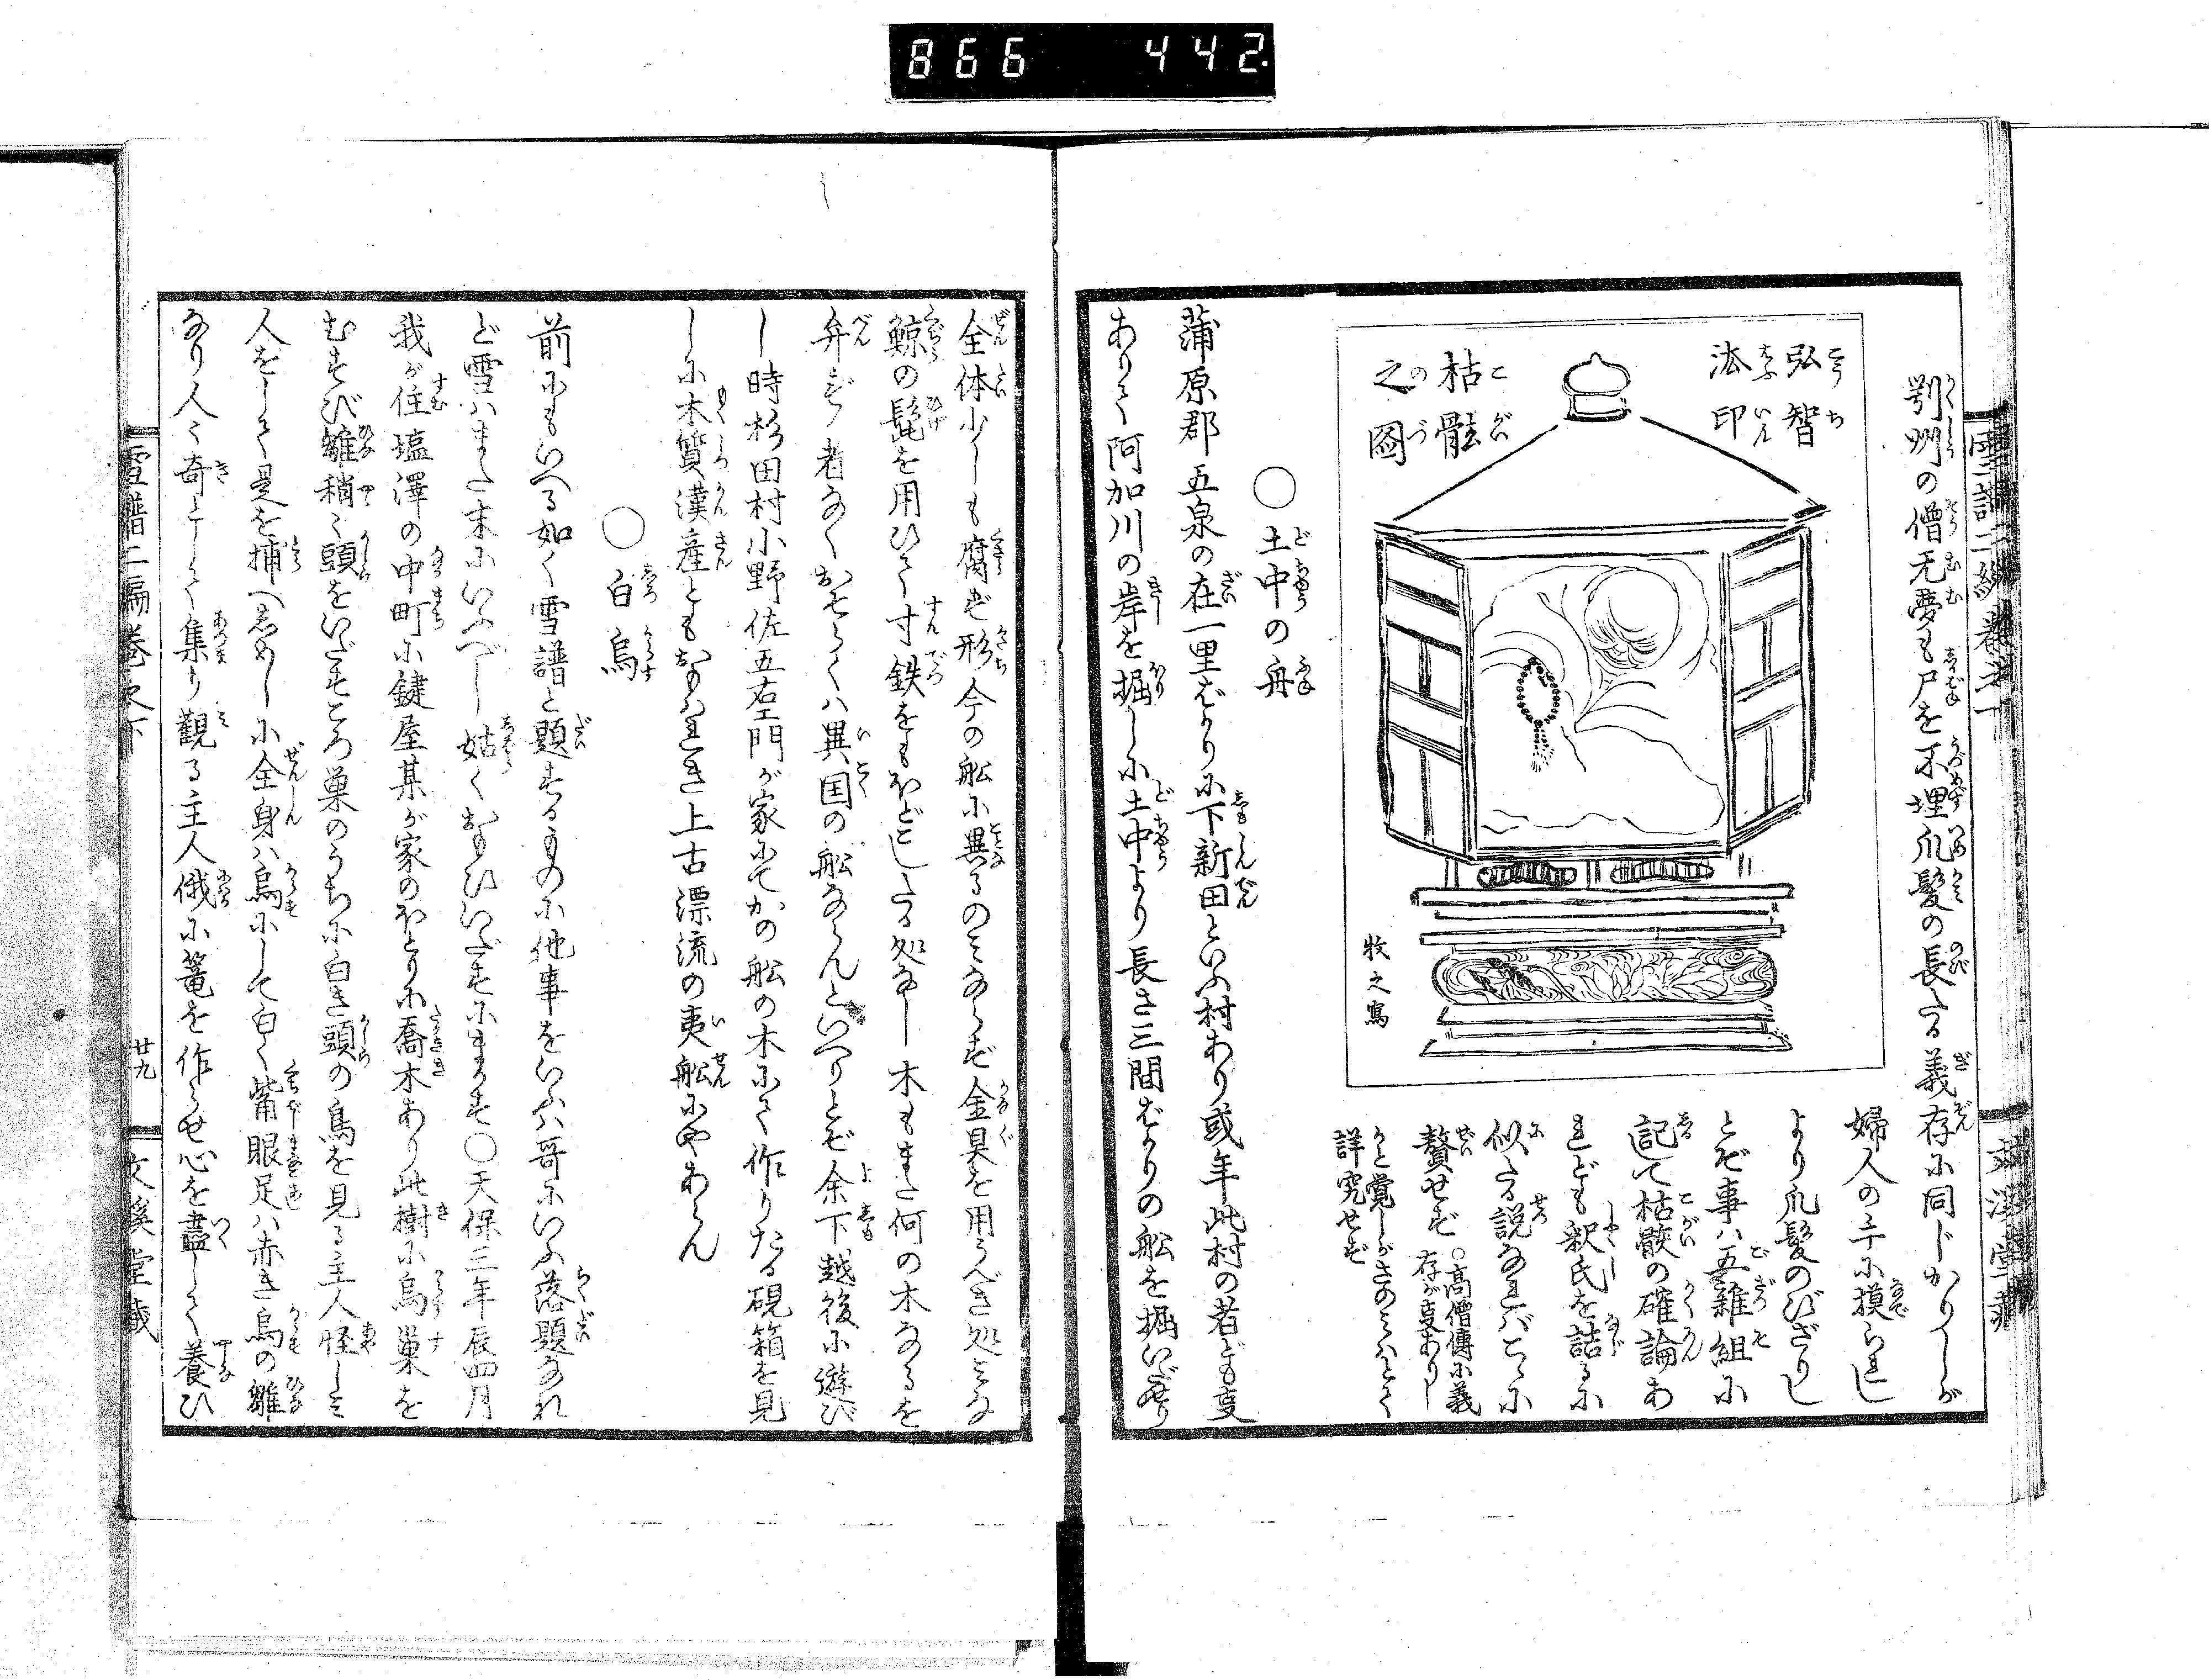 866 442.
雪譜二編巻之下
文渓堂蔵
鄂州の僧无夢も尸を不埋爪髪の長たる義存に同じかりしが
弘智
法印
枯骸
之圖
牧之寫
婦人の手に摸られし
より爪髪のびざりし
とぞ事は五雜組に
記して枯骸の確論あ
れども釈氏を詰るに
似たる説なればこゝに
贅せず
○高僧傳に義
存が事ありし
かと覚しがさのみはとて
詳究せず
○土中の舟
蒲原郡五泉の在一里ばかりに下新田といふ村あり或年此村の者ども事
ありて阿加川の岸を掘しに土中より長さ三間ばかりの舩を掘いだせり
全体少しも腐ず形今の舩に異るのみならず金具を用うべき処みな
鯨の髭を用ひて寸鉄をもほどこしたる処なし木もまた何の木なるを
弁ずる者なくおそらくは異国の舩ならんといへりとぞ余下越後に遊び
し時杉田村小野佐五右エ門が家にてかの舩の木にて作りたる硯箱を見
しに木質漢産ともおもはれき上古漂流の夷舩にやあらん
○白烏
前にもいへる如く雪譜と題するものに他事をいふは哥にいふ落題なれ
ど雪はまた末にいふべし姑くおもひいだすにまかす○天保三年辰四月
我が住塩澤の中町に鍵屋某が家のほとりに喬木あり此樹に烏巣を
むすび雛稍々頭をいだすころ巣のうちに白き頭の烏を見る主人怪しみ
人をして是を捕へしめしに全身は烏にして白く觜眼足は赤き烏の雛
なり人々奇として集り觀る主人俄に篭を作らせ心を盡して養ひ
雪譜二編巻之下
廿九
文溪堂蔵